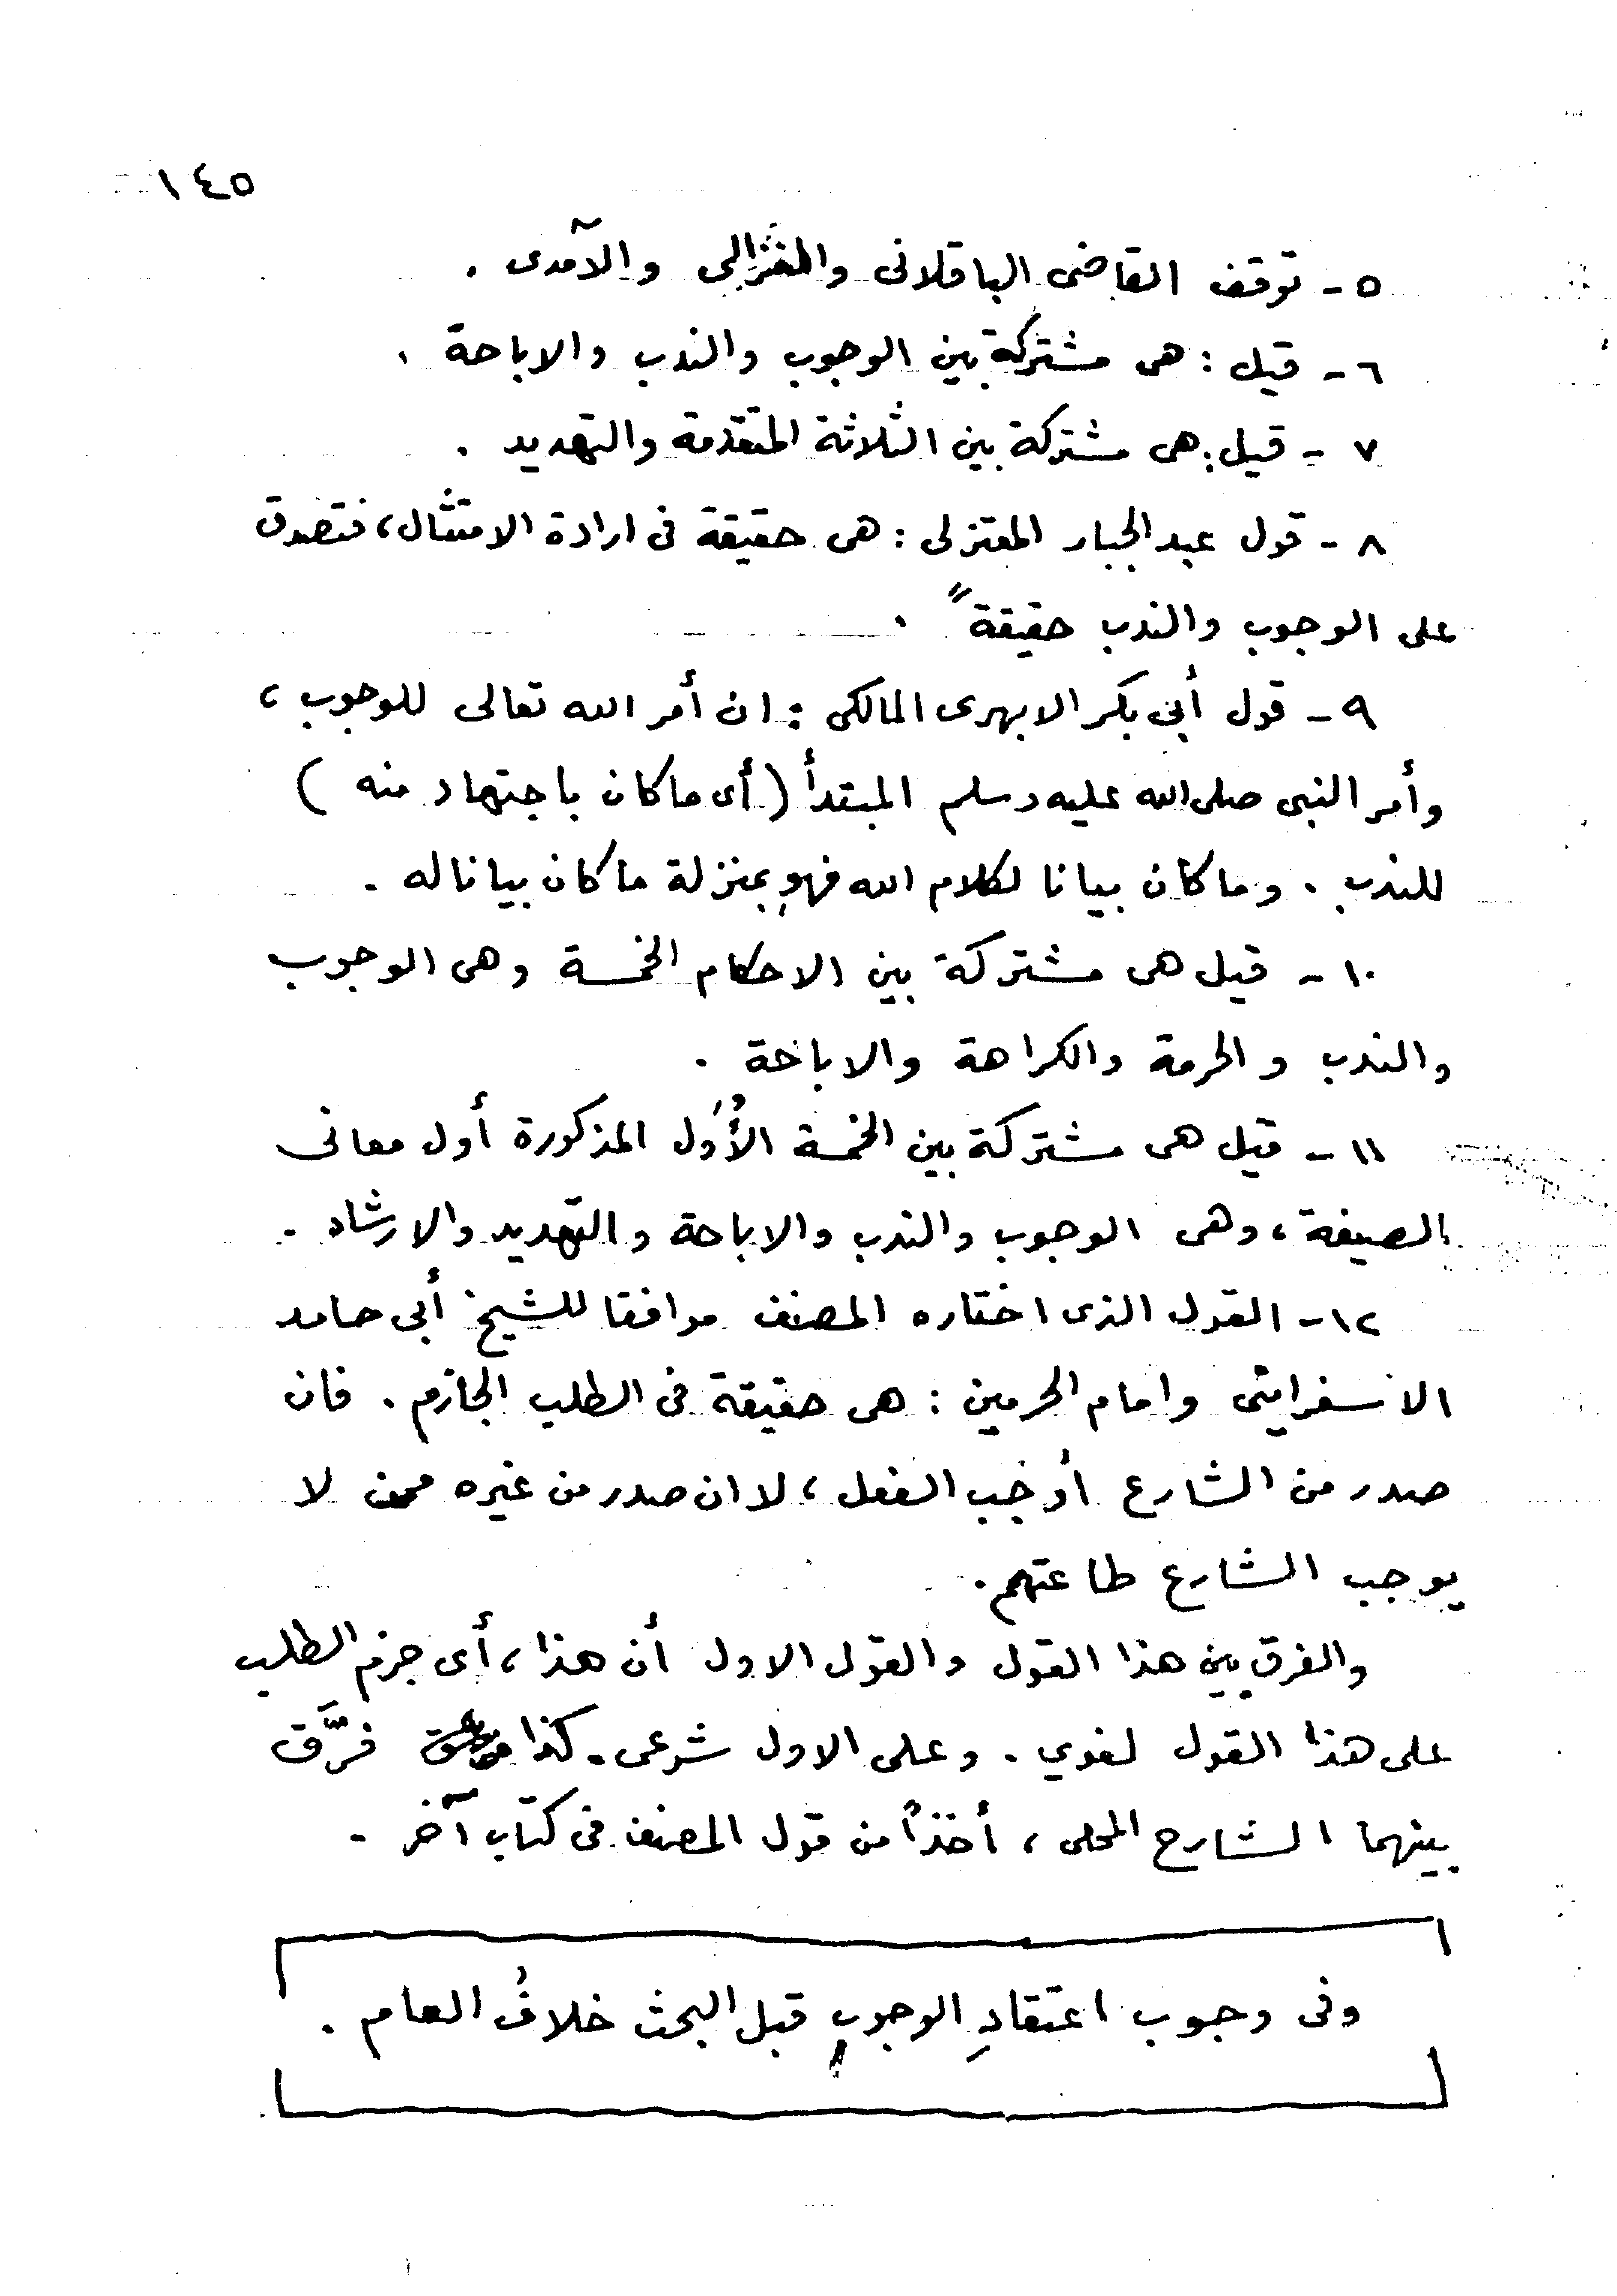 ١٤٥
٥ - توقف القاضى الباقلانى والغزالى والآمدى .
٦ - قيل : هى مشتركة بين الوجوب والندب والاباحة .
٧ - قيل : هى مشتركة بين الثلاثة المتقدمة والتهديد .
٨ - قول عبد الجبار المعتزلى : هى حقيقة فى ارادة الامتثال ، فتصدق
على الوجوب والندب حقيقةً .
٩ - قول أبى بكر الابهرى المالكى : ان أمر الله تعالى للوجوب ،
وأمر النبى صلى الله عليه وسلم المبتدأ ( أى ما كان باجتهاد منه )
للندب . وما كان بيانا لكلام الله فهو بمنزلة ما كان بيانا له .
١٠ - قيل هى مشتركة بين الاحكام الخمسة وهى الوجوب
والندب والحرمة والكراهة والاباحة .
١١ - قيل هى مشتركة بين الخمسة الأُوَل المذكورة أول معانى
الصيغة ، وهى الوجوب والندب والاباحة والتهديد والارشاد .
١٢ - القول الذى اختاره المصنف موافقا للشيخ أبى حامد
الاسفراينى وامام الحرمين : هى حقيقة فى الطلب الجازم . فان
صدر من الشارع أوجب الفعل ، لا ان صدر من غيره ممن لا
يوجب الشارع طاعتهم .
والفرق بين هذا القول والقول الاول أن هذا ، أى جزم الطلب
على هذا القول لغوي . وعلى الاول شرعى . كذا فرَّق
بينهما الشارح المحلى ، أخذاً من قول المصنف فى كتاب آخر .
وفى وجوب اعتقادِ الوجوبِ قبل البحث خلافُ العام .